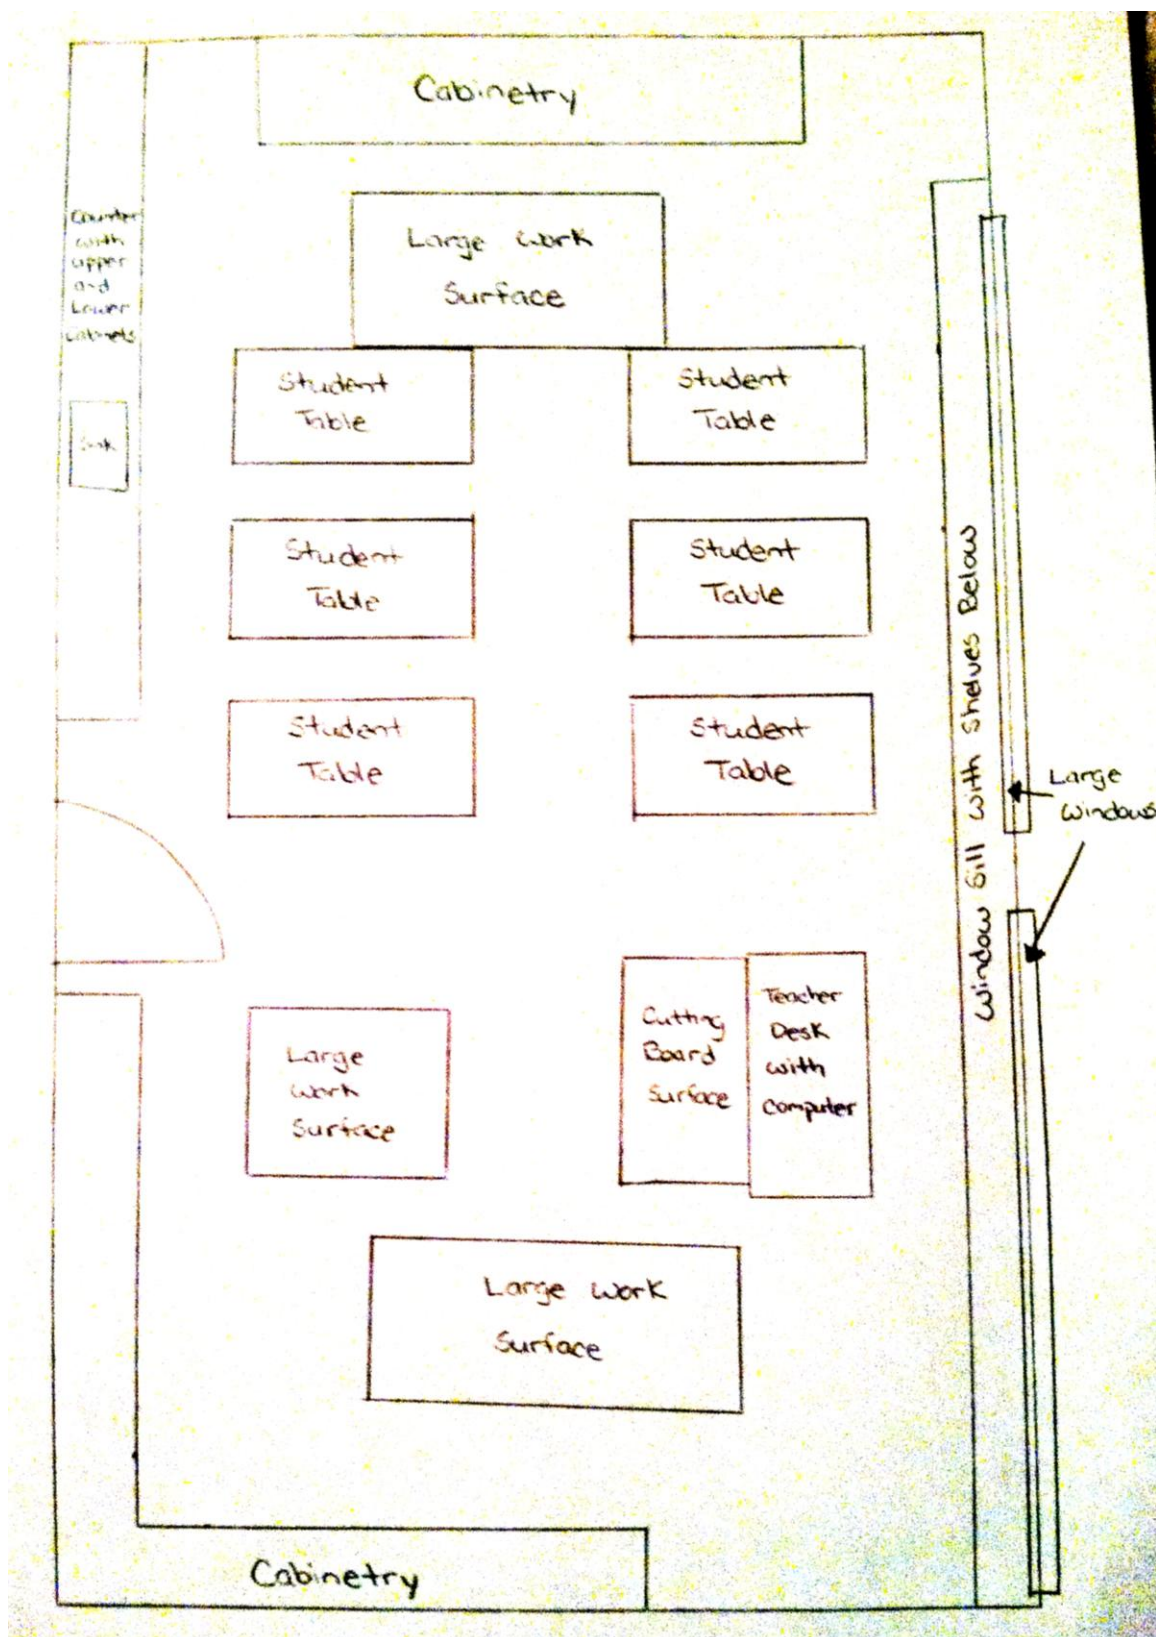 Cabinetry
Large Work
Surface
Counter
with
upper
and
Lower
Cabinets
Student
Table
Student
Table
Sink
Student
Table
Student
Table
Student
Table
Student
Table
Window Sill with Shelves Below
Large
Windows
Large
Work
Surface
Cutting
Board
Surface
Teacher
Desk
with
Computer
Large Work
Surface
Cabinetry